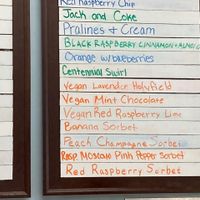 Red Raspberry Chip
Jack and Coke
Pralines & Cream
BLACK RASPBERRY CINNAMON+ALMOND
Orange w/blueberries
Centennial Swirl
Vegan Lavender Holyfield
Vegan Mint Chocolate
Vegan Red Raspberry Lime
Banana Sorbet
Peach Champagne Sorbet
Rasp. Moscato Pink Pepper Sorbet
Red Raspberry Sorbet